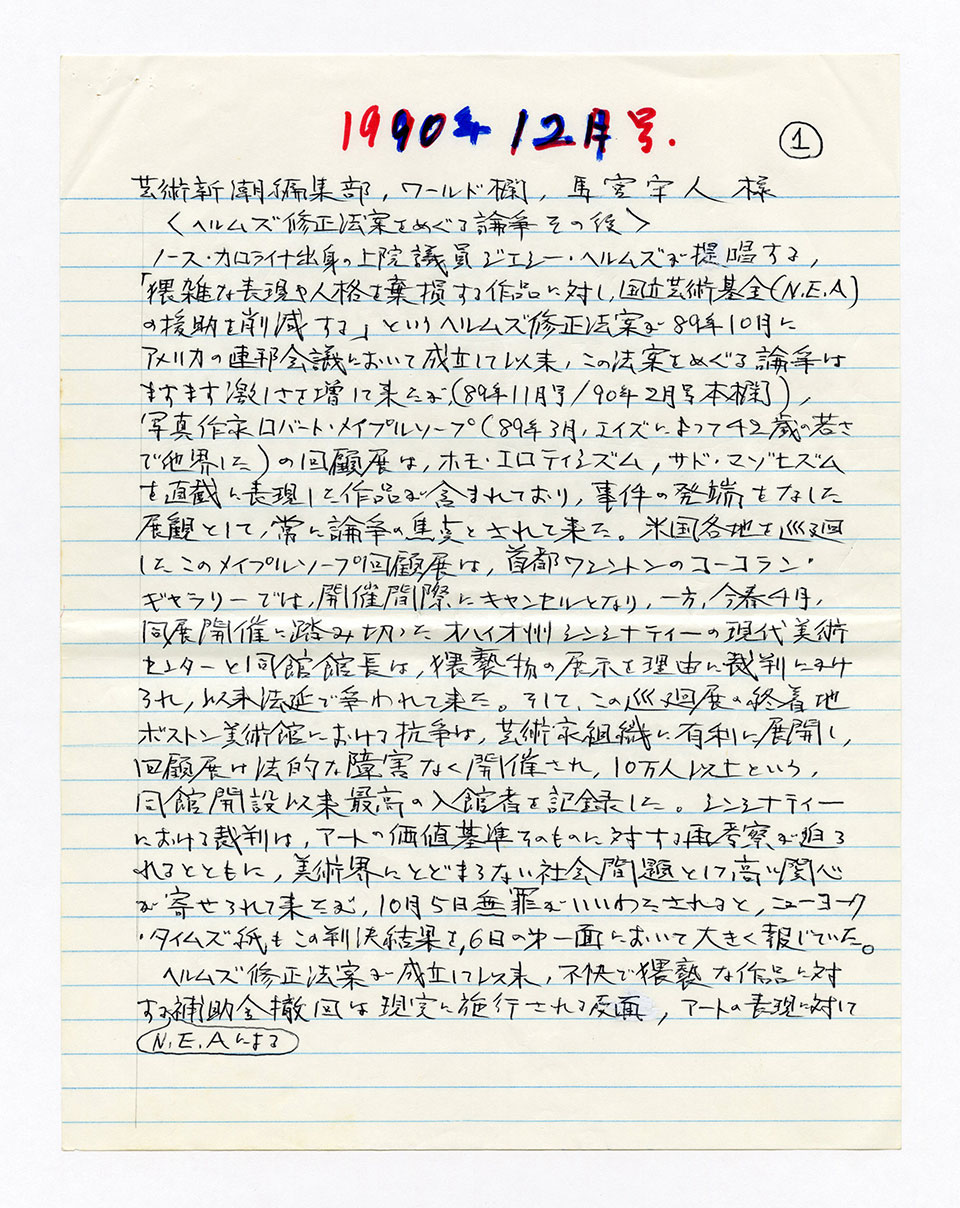 1990年12月号.
①
芸術新潮編集部, ワールド欄, 馬宮宇人 様
〈ヘルムズ修正法案をめぐる論争 その後〉
ノース・カロライナ出身の上院議員ジェシー・ヘルムズが提唱する,
「猥雑な表現や人格を棄損する作品に対し, 国立芸術基金(N.E.A)
の援助を削減する」というヘルムズ修正法案が89年10月に
アメリカの連邦会議において成立して以来, この法案をめぐる論争は
ますます激しさを増して来たが,(89年11月号/90年2月号本欄),
写真作家ロバート・メイプルソープ(89年3月, エイズによって42歳の若さ
で他界した)の回顧展は, ホモ・エロティシズム, サド・マゾヒズム
を直截に表現した作品が含まれており, 事件の発端をなした
展観として, 常に論争の焦点とされて来た。米国各地を巡廻
したこのメイプルソープ回顧展は, 首都ワシントンのコーコラン・
ギャラリーでは, 開催間際にキャンセルとなり, 一方, 今春4月,
同展開催に踏み切った オハイオ州シンシナティーの現代美術
センターと同館館長は, 猥褻物の展示を理由に裁判にかけ
られ, 以来法廷で争われて来た。そして, この巡廻展の終着地
ボストン美術館における抗争は, 芸術家組織に有利に展開し,
回顧展は法的な障害なく開催され, 10万人以上という,
同館開設以来最高の入館者を記録した。シンシナティー
における裁判は, アートの価値基準そのものに対する再考察が迫ら
れるとともに, 美術界にとどまらない社会問題として高い関心
が寄せられて来たが, 10月5日無罪がいいわたされると, ニューヨーク
・タイムズ紙もこの判決結果を, 6日の第一面において大きく報じていた。
ヘルムズ修正法案が成立して以来, 不快で猥褻な作品に対
する補助金撤回は現実に施行される反面, アートの表現に対して
N.E.Aによる